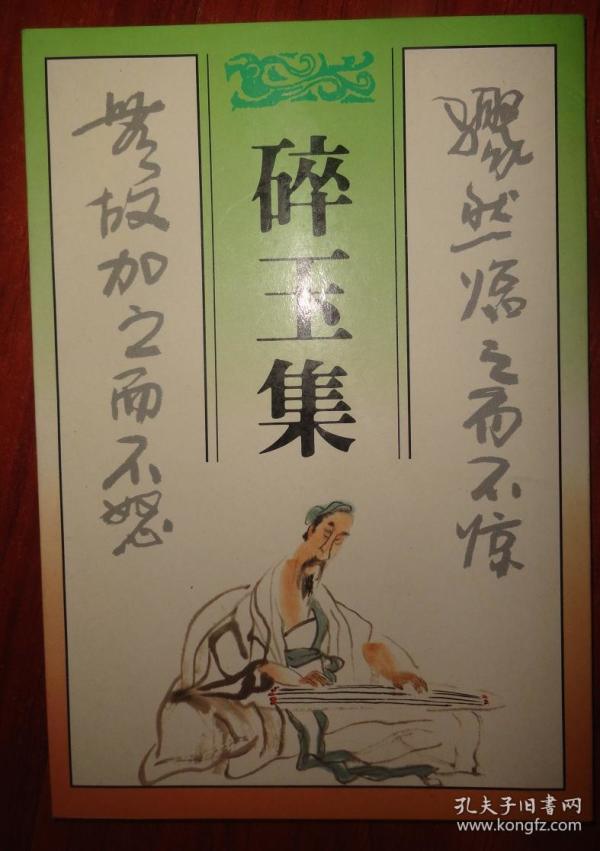 骤然临之而不惊
碎玉集
無故加之而不怒
孔夫子旧书网
www.kongfz.com